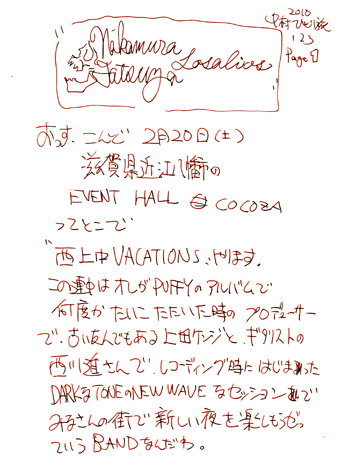 2010
中村ひとり旅
123
Page 1
Nakamura
Tatsuya
Losalios
おっす、こんど 2月20日(土)
滋賀県近江八幡の
EVENT HALL COCOZA
ってとこで
"西上中VACATIONS、やります。
この連中はオレがPUFFYのアルバムで
何度かたいこたたいた時のプロデューサー
で、古い友人でもある上田ケンジと、ギタリストの
西川進さんで、レコーディング時にはじまった
DARKなTONEのNEW WAVEなセッションで
みなさんの街で新しい夜を楽しもうぜっ
ていうBANDなんだわ。